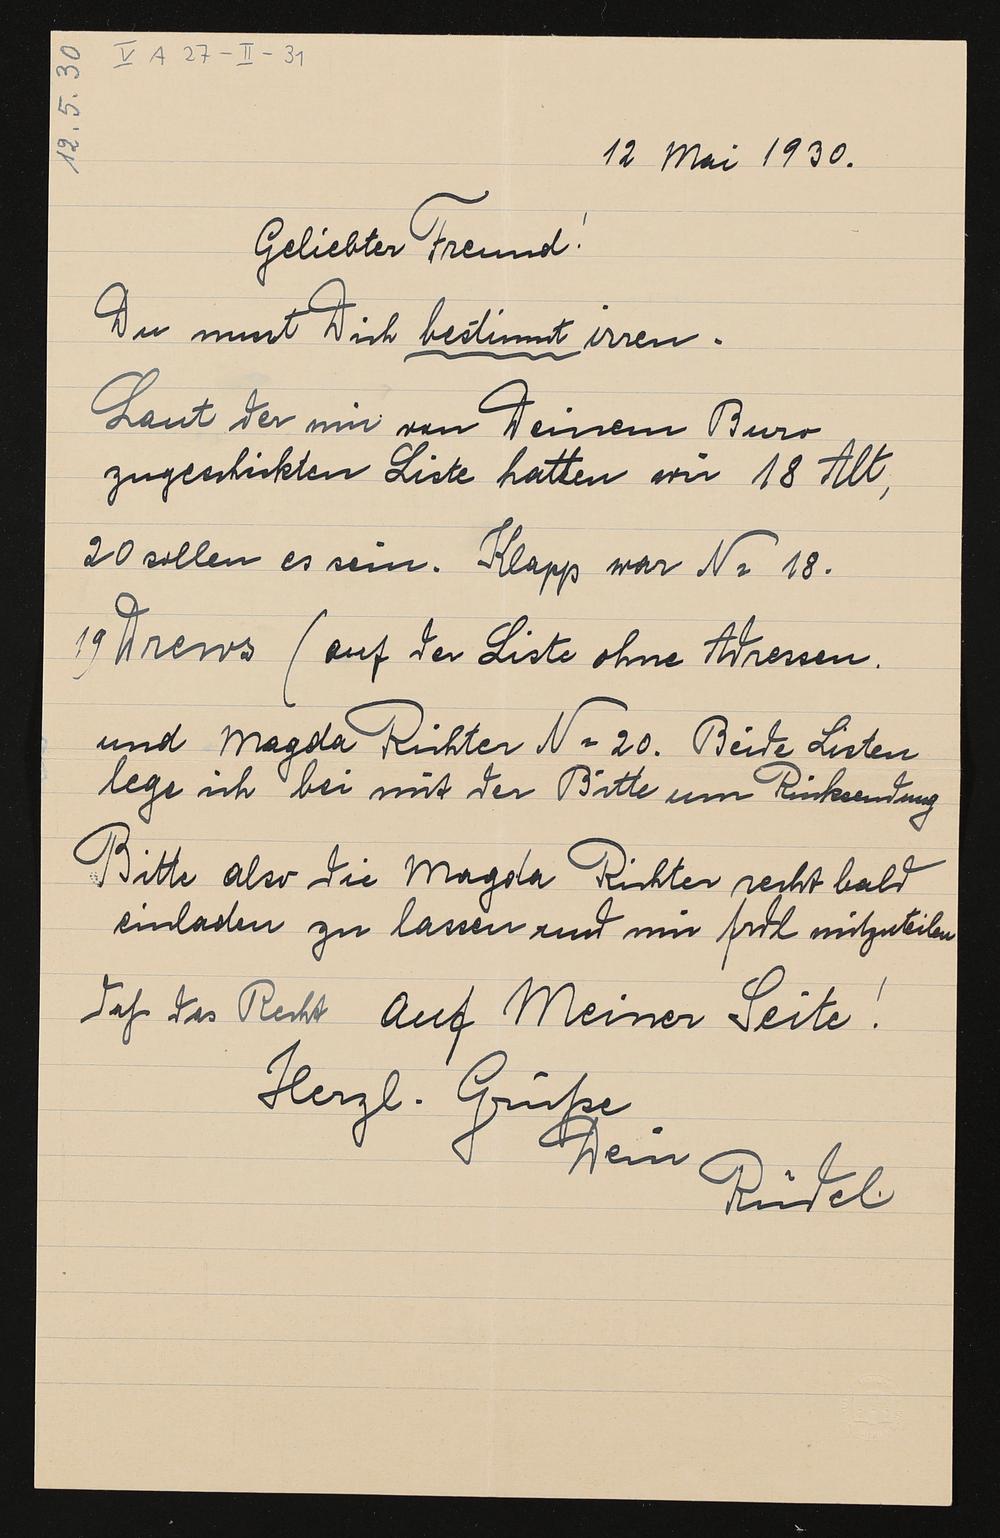 V A 27-II-31
12.5.30
12 Mai 1930.
Geliebter Freund!
Du musst Dich bestimmt irren.
Laut der mir von Deinem Buro
zugeschickten Liste hatten wir 18 Alt,
20 sollen es sein. Klapp war No 18.
19) Drews (auf der Liste ohne Adressen.
und Magda Richter No 20. Beide Listen
lege ich bei mit der Bitte um Rücksendung
Bitte also die Magda Richter recht bald
einladen zu lassen und mir frdl mitzuteilen
daß das Recht auf Meiner Seite!
Herzl. Grüße
Dein
Rüdel.